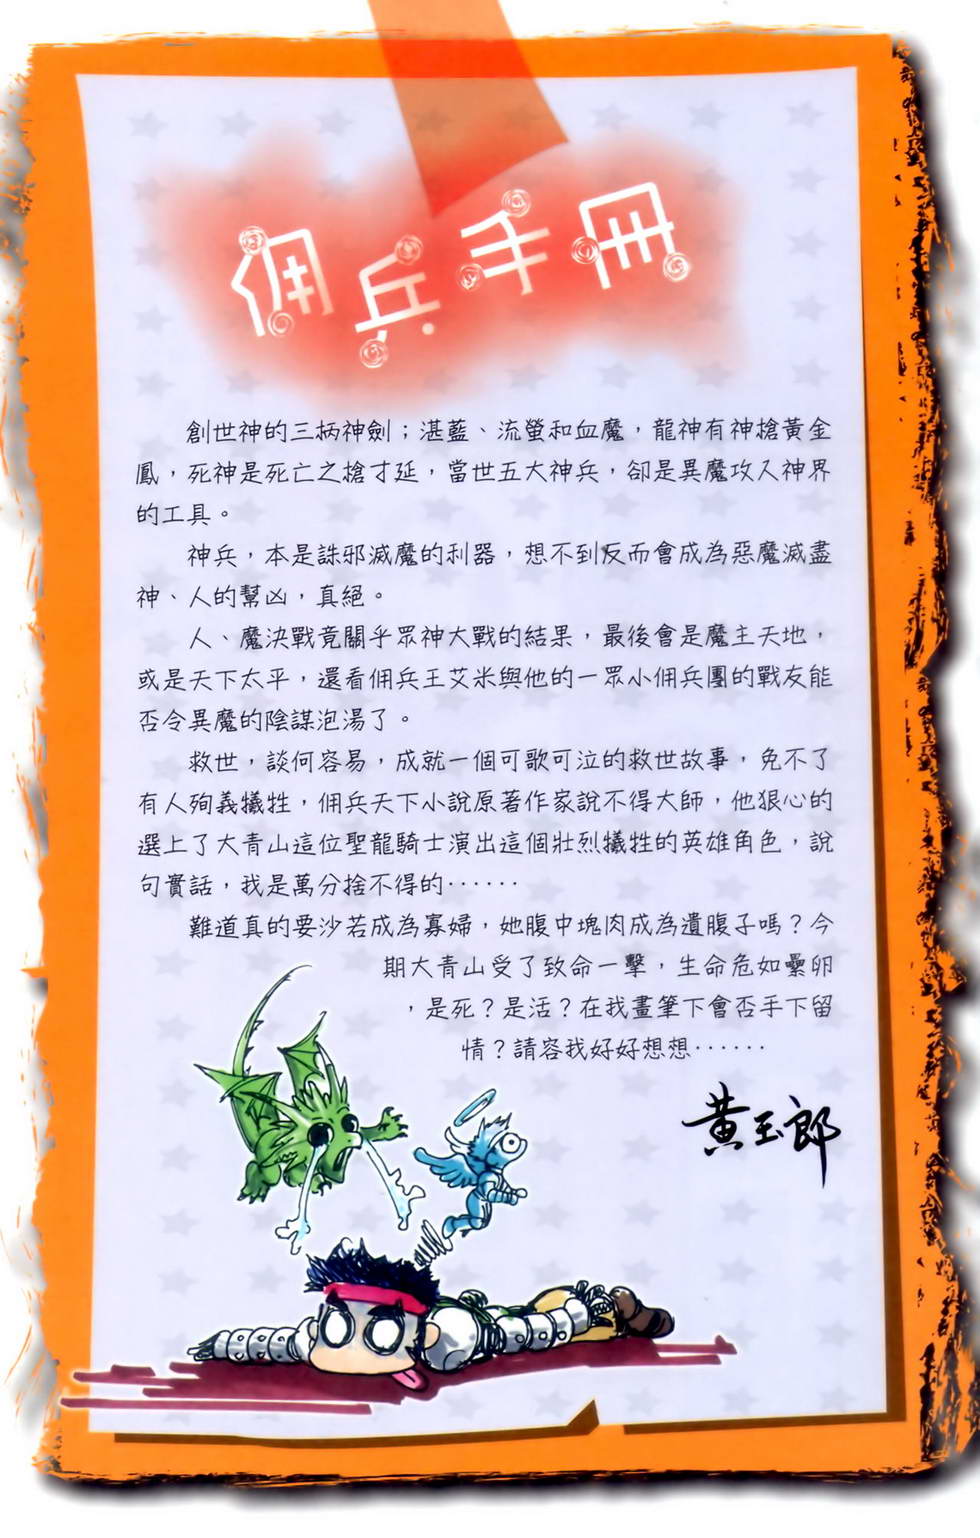 佣兵手冊
創世神的三柄神劍；湛藍、流螢和血魔，龍神有神槍黃金
鳳，死神是死亡之槍才延，當世五大神兵，卻是異魔攻入神界
的工具。
神兵，本是誅邪滅魔的利器，想不到反而會成為惡魔滅盡
神、人的幫凶，真絕。
人、魔決戰竟關乎眾神大戰的結果，最後會是魔主天地，
或是天下太平，還看佣兵王艾米與他的一眾小佣兵團的戰友能
否令異魔的陰謀泡湯了。
救世，談何容易，成就一個可歌可泣的救世故事，免不了
有人殉義犧牲，佣兵天下小說原著作家說不得大師，他狠心的
選上了大青山這位聖龍騎士演出這個壯烈犧牲的英雄角色，說
句實話，我是萬分捨不得的······
難道真的要沙若成為寡婦，她腹中塊肉成為遺腹子嗎？今
期大青山受了致命一擊，生命危如纍卵
，是死？是活？在我畫筆下會否手下留
情？請容我好好想想······
黃玉郎